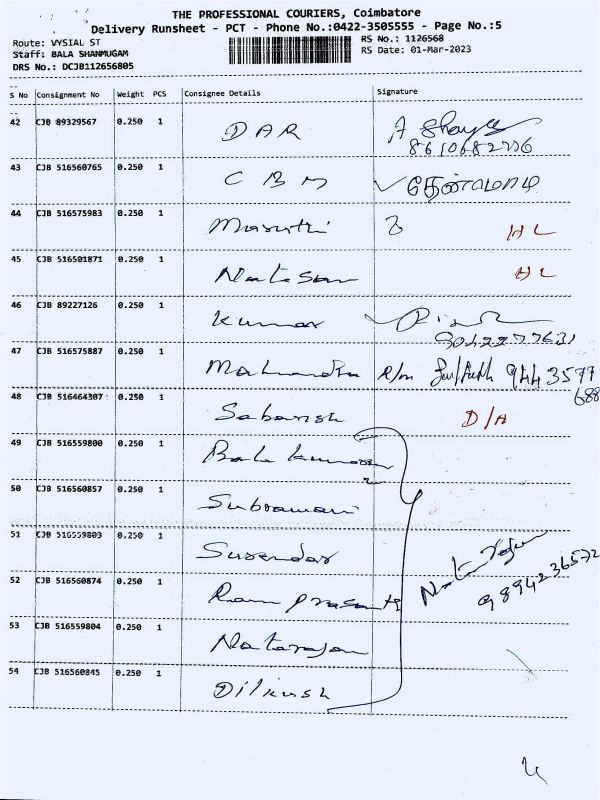 THE PROFESSIONAL COURIERS, Coimbatore
Delivery Runsheet - PCT - Phone No.:0422-3505555 - Page No.:5
Route: VYSIAL ST
Staff: BALA SHANMUGAM
DRS No.: DCJB112656805
RS No.: 1126568
RS Date: 01-Mar-2023
S No Consignment No Weight PCS Consignee Details Signature
42 CJB 89329567 0.250 1 DAR
43 CJB 516560765 0.250 1 C B M தென்றமாடி
44 CJB 516575983 0.250 1 Maruthi HL
45 CJB 516501871 0.250 1 Natesan HL
46 CJB 89227126 0.250 1 Kumar
47 CJB 516575887 0.250 1 Mahendra 9443577
688
48 CJB 516464307 0.250 1 Sabarish D/A
49 CJB 516559800 0.250 1 Bala Kumaran
50 CJB 516560857 0.250 1 Subramani
51 CJB 516559803 0.250 1 Surendar
52 CJB 516560874 0.250 1 Ram Prasanth
Natarajan
9894236572
53 CJB 516559804 0.250 1 Natarajan
54 CJB 516560845 0.250 1 Dilkush